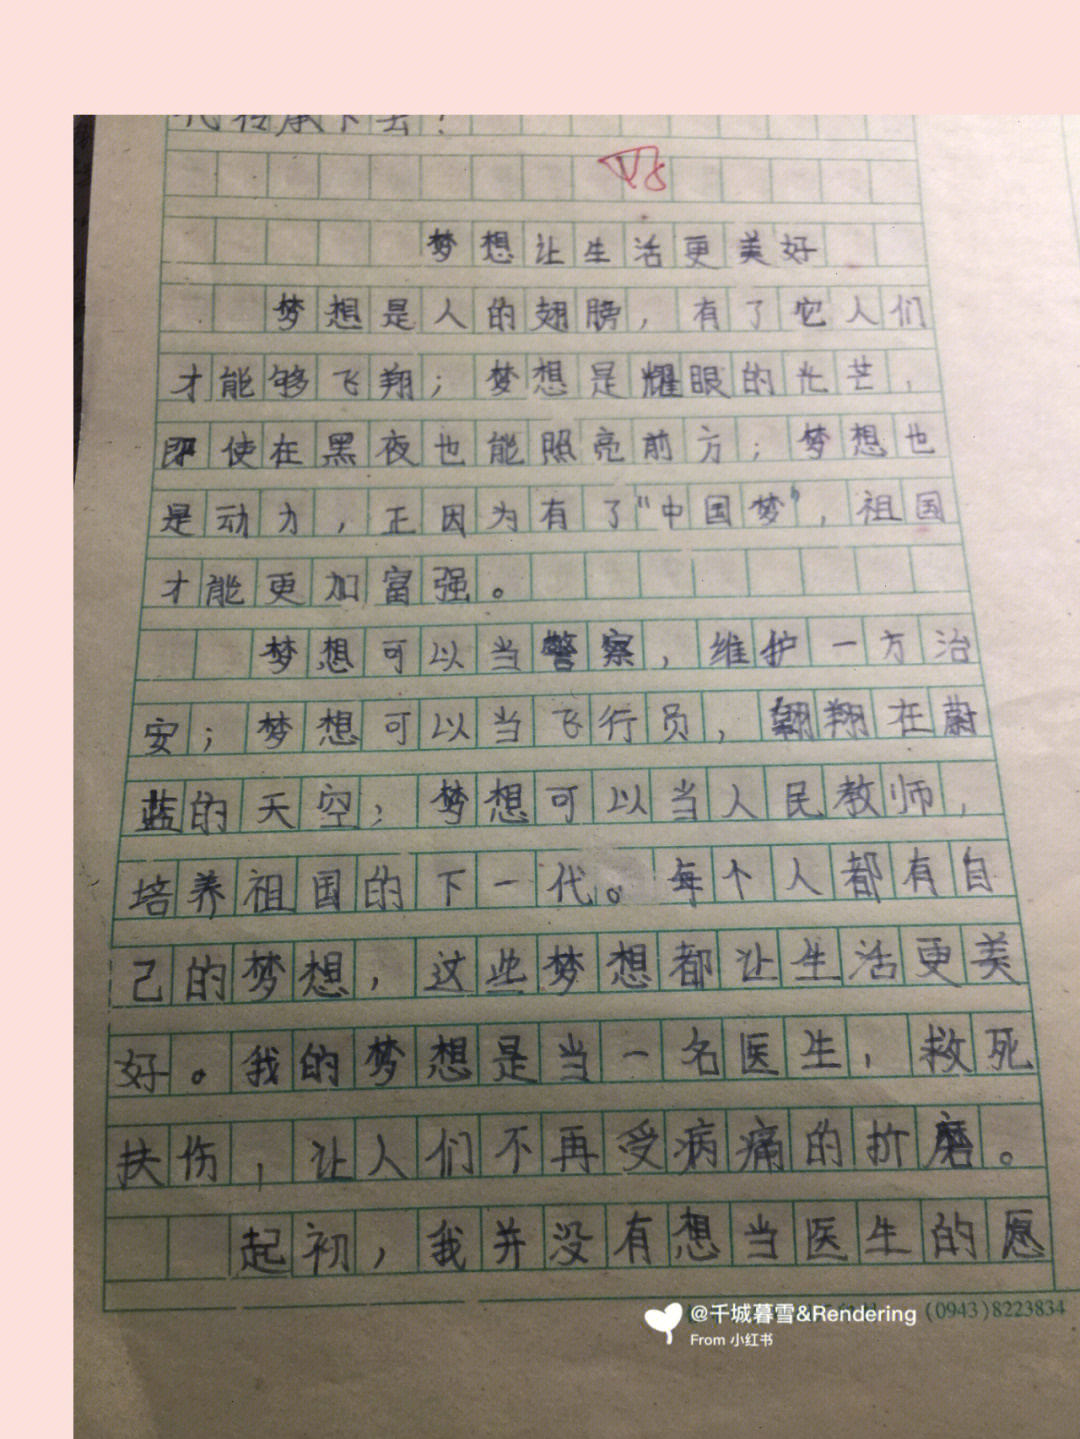 代传承下去！
梦想让生活更美好
梦想是人的翅膀，有了它人们
才能够飞翔；梦想是耀眼的光芒，
即使在黑夜也能照亮前方；梦想也
是动力，正因为有了“中国梦”，祖国
才能更加富强。
梦想可以当警察，维护一方治
安；梦想可以当飞行员，翱翔在蔚
蓝的天空；梦想可以当人民教师，
培养祖国的下一代。每个人都有自
己的梦想，这些梦想都让生活更美
好。我的梦想是当一名医生，救死
扶伤，让人们不再受病痛的折磨。
起初，我并没有想当医生的愿
(0943)8223834
@千城暮雪&Rendering
From 小红书